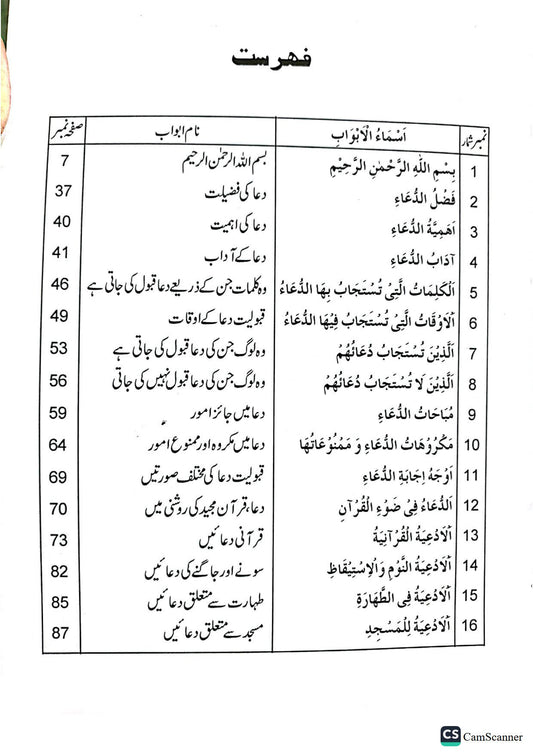 فہرست
نمبر شمار اَسْمَاءُ الْاَبْوَابِ نام ابواب صفحہ نمبر
1 بِسْمِ اللّٰهِ الرَّحْمٰنِ الرَّحِيْمِ بسم اللہ الرحمٰن الرحیم 7
2 فَضْلُ الدُّعَاءِ دعا کی فضیلت 37
3 اَهَمِيَّةُ الدُّعَاءِ دعا کی اہمیت 40
4 آدَابُ الدُّعَاءِ دعا کے آداب 41
5 اَلْكَلِمَاتُ الَّتِىْ تُسْتَجَابُ بِهَا الدُّعَاءُ وہ کلمات جن کے ذریعے دعا قبول کی جاتی ہے 46
6 اَلْاَوْقَاتُ الَّتِىْ تُسْتَجَابُ فِيْهَا الدُّعَاءُ قبولیت دعا کے اوقات 49
7 اَلَّذِيْنَ تُسْتَجَابُ دُعَائُهُمْ وہ لوگ جن کی دعا قبول کی جاتی ہے 53
8 اَلَّذِيْنَ لَا تُسْتَجَابُ دُعَائُهُمْ وہ لوگ جن کی دعا قبول نہیں کی جاتی 56
9 مُبَاحَاتُ الدُّعَاءِ دعا میں جائز امور 59
10 مَكْرُوْهَاتُ الدُّعَاءِ وَ مَمْنُوْعَاتُهَا دعا میں مکروہ اور ممنوع امور 64
11 اَوْجُهُ اِجَابَةِ الدُّعَاءِ قبولیت دعا کی مختلف صورتیں 69
12 اَلدُّعَاءُ فِىْ ضَوْءِ الْقُرْآنِ دعا، قرآن مجید کی روشنی میں 70
13 اَلْاَدْعِيَةُ الْقُرْآنِيَةُ قرآنی دعائیں 73
14 اَلْاَدْعِيَةُ النَّوْمِ وَالْاِسْتِيْقَاظِ سونے اور جاگنے کی دعائیں 82
15 اَلْاَدْعِيَةُ فِى الطَّهَارَةِ طہارت سے متعلق دعائیں 85
16 اَلْاَدْعِيَةُ لِلْمَسْجِدِ مسجد سے متعلق دعائیں 87
CS CamScanner